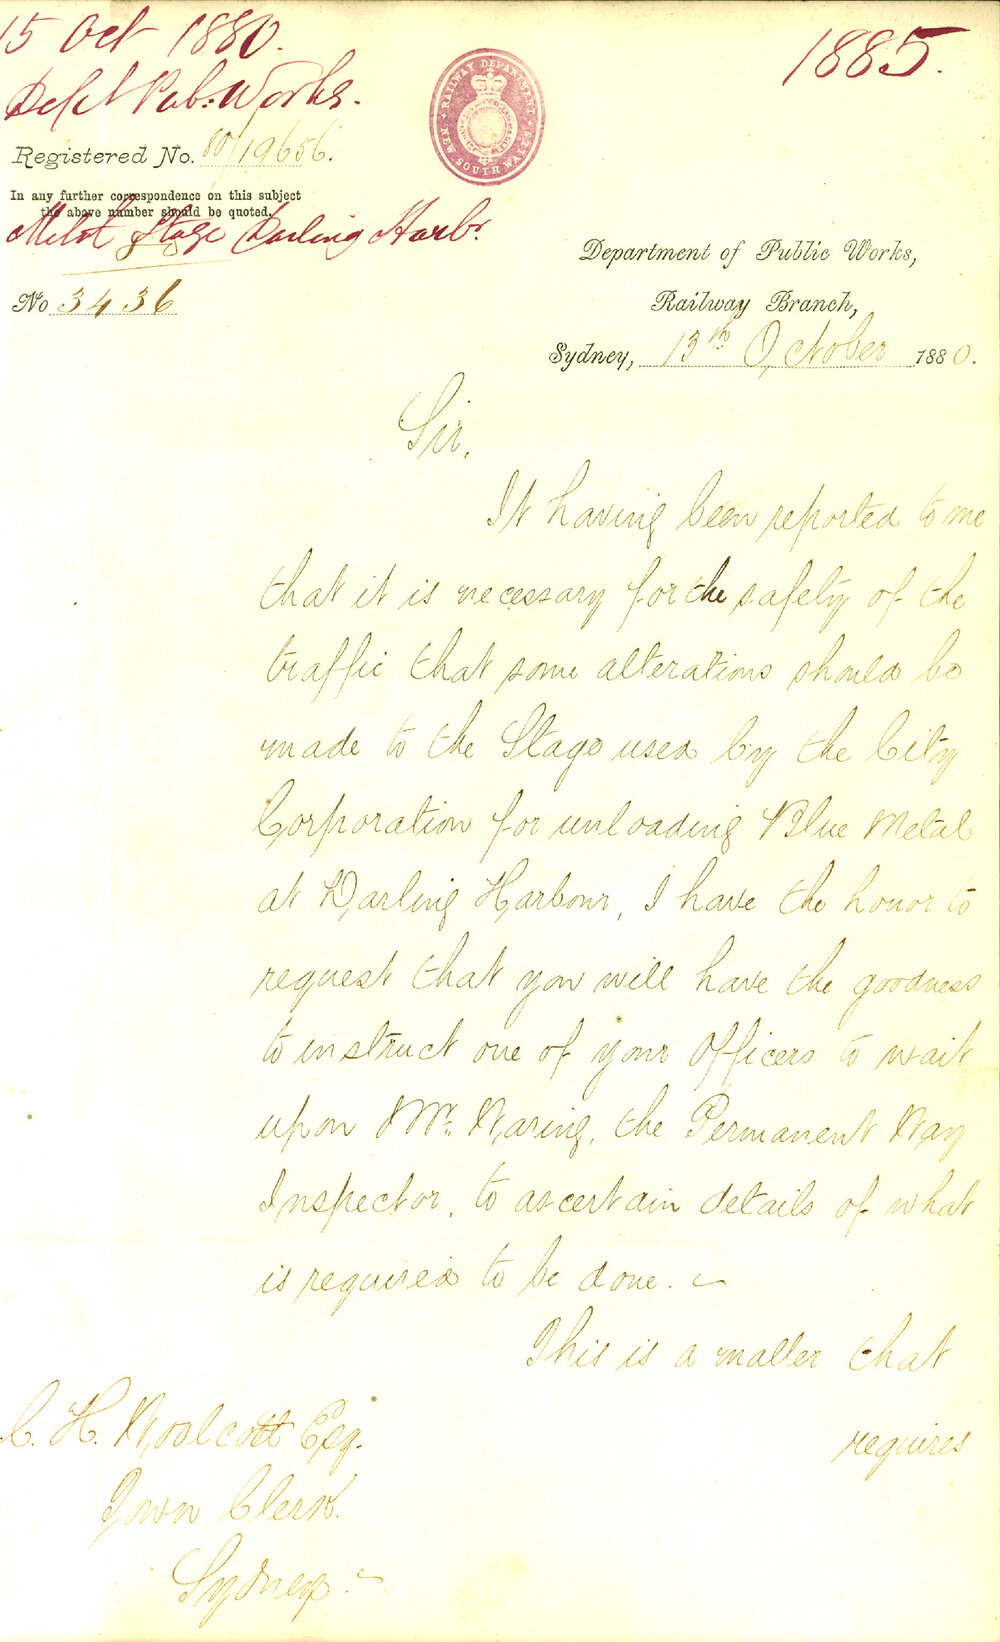 15 Oct 1880.
1885.
Dept Pub: Works.
RAILWAY DEPARTMENT
NEW SOUTH WALES
Registered No. 80/19656.
In any further correspondence on this subject
the above number should be quoted.
Metal Stage Darling Harbr.
Department of Public Works,
Railway Branch,
No 3436
Sydney, 13th October 1880.
Sir,
It having been reported to me
that it is necessary for the safety of the
traffic that some alterations should be
made to the Stage used by the City
Corporation for unloading Blue Metal
at Darling Harbour, I have the honor to
request that you will have the goodness
to instruct one of your Officers to wait
upon Mr. Waring, the Permanent Way
Inspector, to ascertain details of what
is required to be done.
This is a matter that
requires
C. H. Woolcott Esq.
Town Clerk.
Sydney.